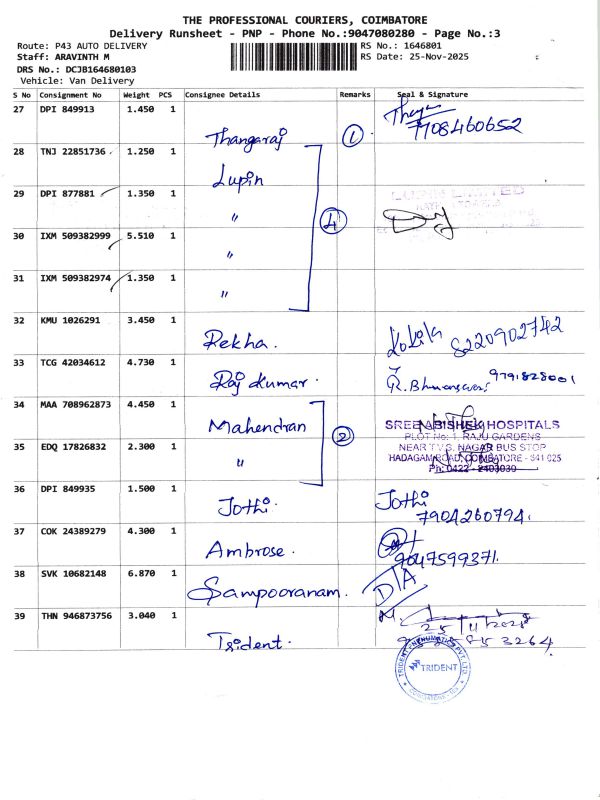 THE PROFESSIONAL COURIERS, COIMBATORE
Delivery Runsheet - PNP - Phone No.:9047080280 - Page No.:3
Route: P43 AUTO DELIVERY RS No.: 1646801
Staff: ARAVINTH M RS Date: 25-Nov-2025
DRS No.: DCJB164680103
Vehicle: Van Delivery
S No Consignment No Weight PCS Consignee Details Remarks Seal & Signature
27 DPI 849913 1.450 1
Thangaraj 1 7708460652
28 TNJ 22851736 1.250 1
Lupin
29 DPI 877881 1.350 1
" 4
30 IXM 509382999 5.510 1
"
31 IXM 509382974 1.350 1
"
32 KMU 1026291 3.450 1
Rekha. Kokila 8220902742
33 TCG 42034612 4.730 1
Raj Kumar. 9791828001
34 MAA 708962873 4.450 1
Mahendran 2 SREE ABISHEK HOSPITALS
PLOT No: 1, RAJU GARDENS
35 EDQ 17826832 2.300 1 NEAR T.V.S. NAGAR BUS STOP
" HADAGAM ROAD, COIMBATORE - 641 025
Ph: 0422 - 2403030
36 DPI 849935 1.500 1
Jothi. Jothi
7904260794.
37 COK 24389279 4.300 1
Ambrose. 9047599371.
38 SVK 10682148 6.870 1
Sampooranam. D/A
39 THN 946873756 3.040 1
Trident. 25/11/2025
TRIDENT